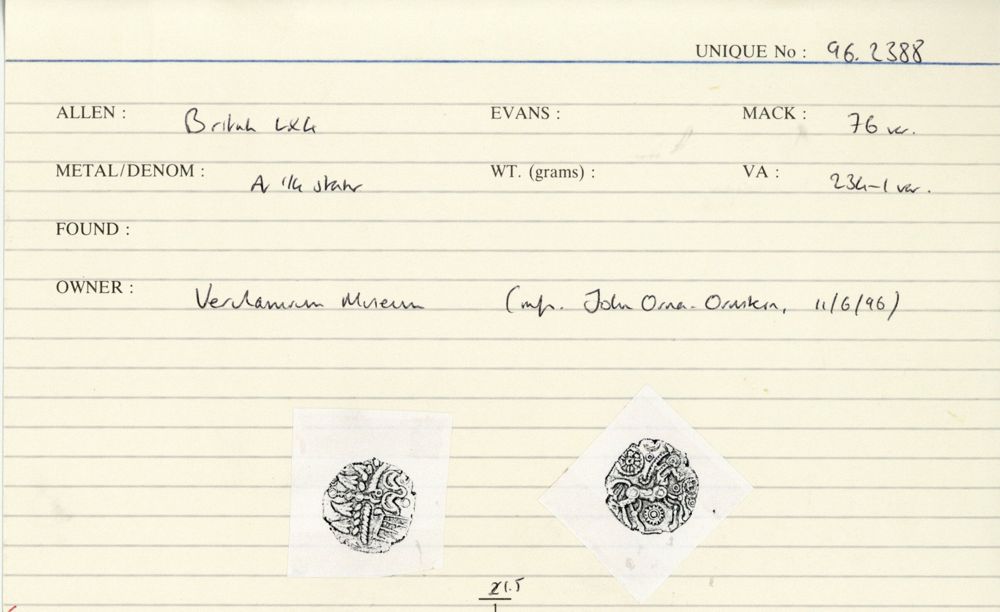 UNIQUE No : 96. 2388
ALLEN : British LXA EVANS : MACK : 76 var.
METAL/DENOM : AV 1/4 stater WT. (grams) : VA : 234-1 var.
FOUND :
OWNER : Verulamium Museum (inf. John Orna-Ornstein, 11/6/96)
1.5
1